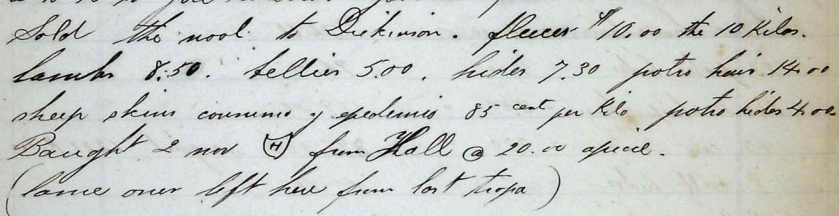 Sold the wool to Dickinson. fleeces $10.00 the 10 Kilos.
lambs 8.50. bellies 5.00. hides 7.30 potro hair 14.00
sheep skins consumo y epedemio 85 cent per Kilo potro hides 4.00
Baught 2 nov H from Hall @ 20.00 apiece.
(lame ones left here from last tropa)